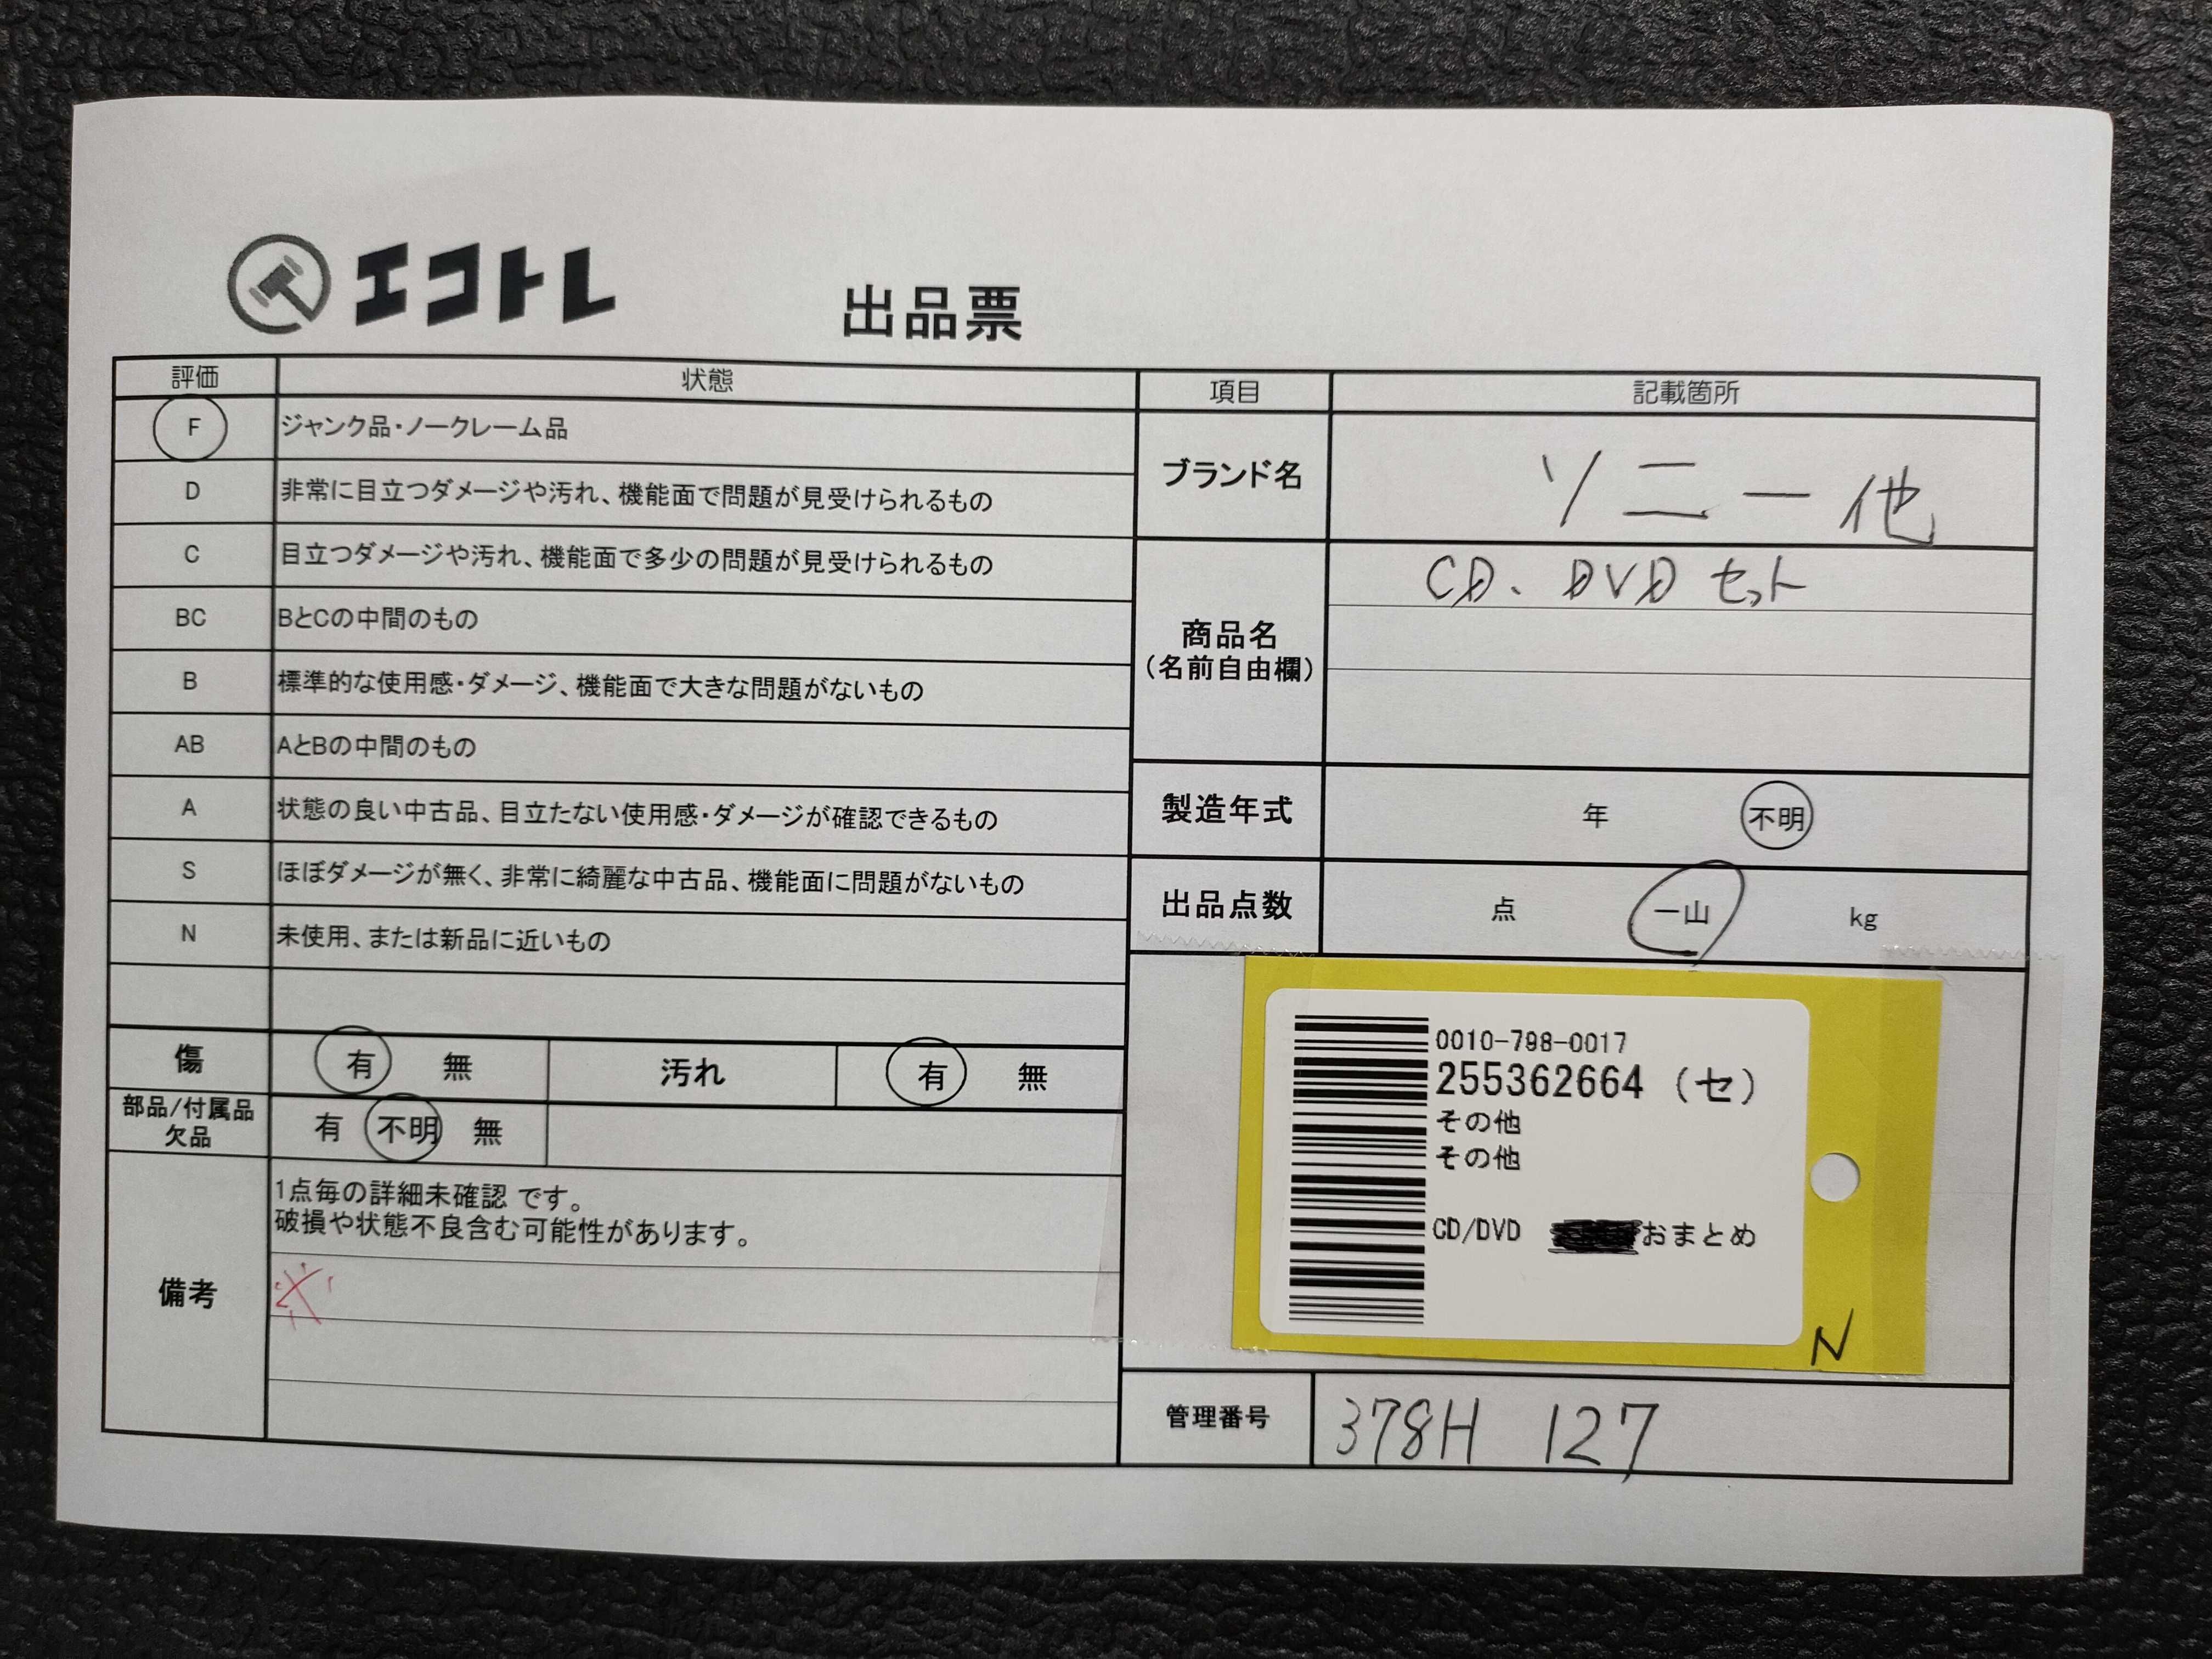 エコトレ
出品票
評価 状態
F ジャンク品・ノークレーム品
D 非常に目立つダメージや汚れ、機能面で問題が見受けられるもの
C 目立つダメージや汚れ、機能面で多少の問題が見受けられるもの
BC BとCの中間のもの
B 標準的な使用感・ダメージ、機能面で大きな問題がないもの
AB AとBの中間のもの
A 状態の良い中古品、目立たない使用感・ダメージが確認できるもの
S ほぼダメージが無く、非常に綺麗な中古品、機能面に問題がないもの
N 未使用、または新品に近いもの
傷 有 無 汚れ 有 無
部品/付属品
欠品 有 不明 無
備考
1点毎の詳細未確認 です。
破損や状態不良含む可能性があります。
項目 記載箇所
ブランド名 ソニー他
商品名
(名前自由欄)
CD、DVD セット
製造年式 年 不明
出品点数 点 一山 kg
0010-798-0017
255362664 (セ)
その他
その他
CD/DVD おまとめ
N
管理番号 378H 127